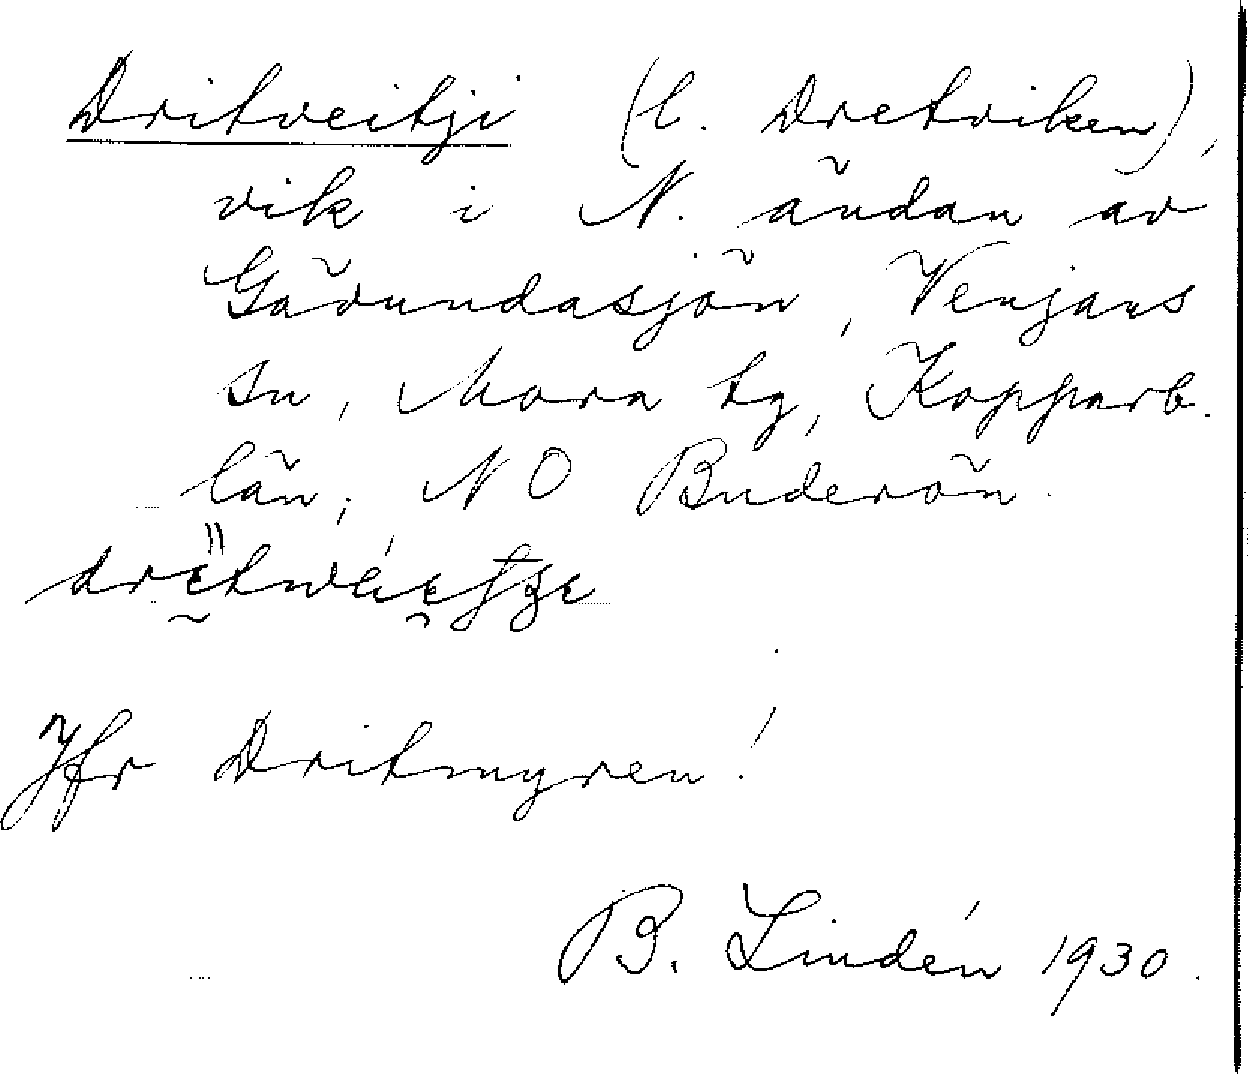 Dritveitji (l. Dretviken),
vik i N. ändan av
Gävundasjön, Venjans
sn, Mora tg, Kopparb.
län; NO Buderön.
Jfr Dritmyren!
B. Lindén 1930.